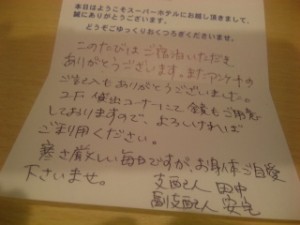 本日はようこそスーパーホテルにお越し頂きまして、
誠にありがとうございます。
どうぞごゆっくりおくつろぎくださいませ。
このたびはご宿泊いただき
ありがとうございます。またアンケートの
ご記入もありがとうございました。
2F 貸出コーナーにて 鏡もご用意
しておりますので、よろしければ
ご利用ください。
寒さ厳しい毎日ですが、お身体ご自愛
下さいませ。
支配人 田中
副支配人 安宅